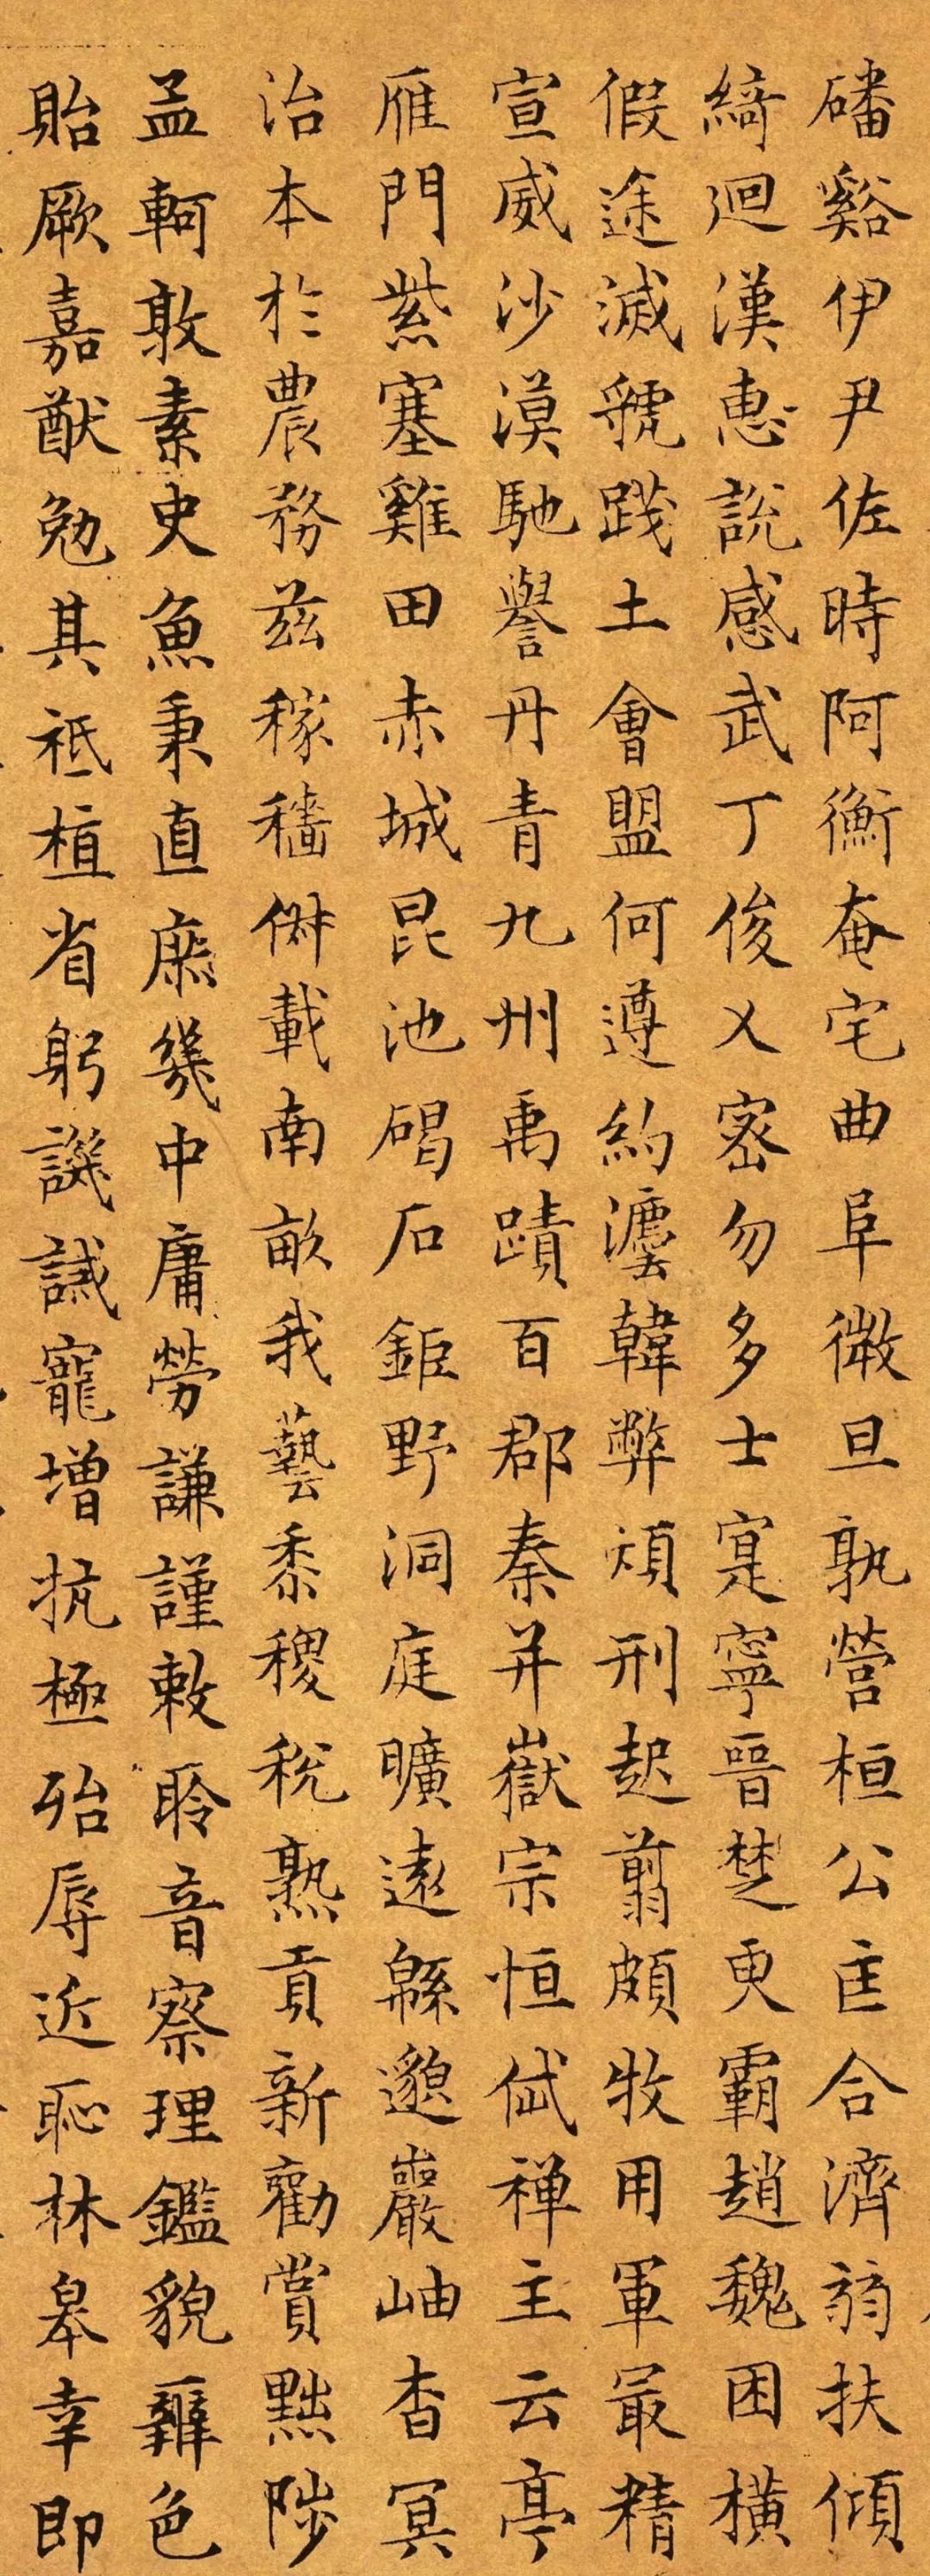 磻谿伊尹佐時阿衡奄宅曲阜微旦孰營桓公匡合濟弱扶傾
綺迴漢惠說感武丁俊乂密勿多士寔寧晉楚更霸趙魏困橫
假途滅虢踐土會盟何遵約灋韓弊煩刑起翦頗牧用軍最精
宣威沙漠馳譽丹青九州禹蹟百郡秦并嶽宗恒岱禪主云亭
雁門紫塞雞田赤城昆池碣石鉅野洞庭曠遠緜邈巖岫杳冥
治本於農務茲稼穡俶載南畝我藝黍稷稅熟貢新勸賞黜陟
孟軻敦素史魚秉直庶幾中庸勞謙謹敕聆音察理鑑貌辨色
貽厥嘉猷勉其祗植省躬譏誡寵增抗極殆辱近恥林皋幸即